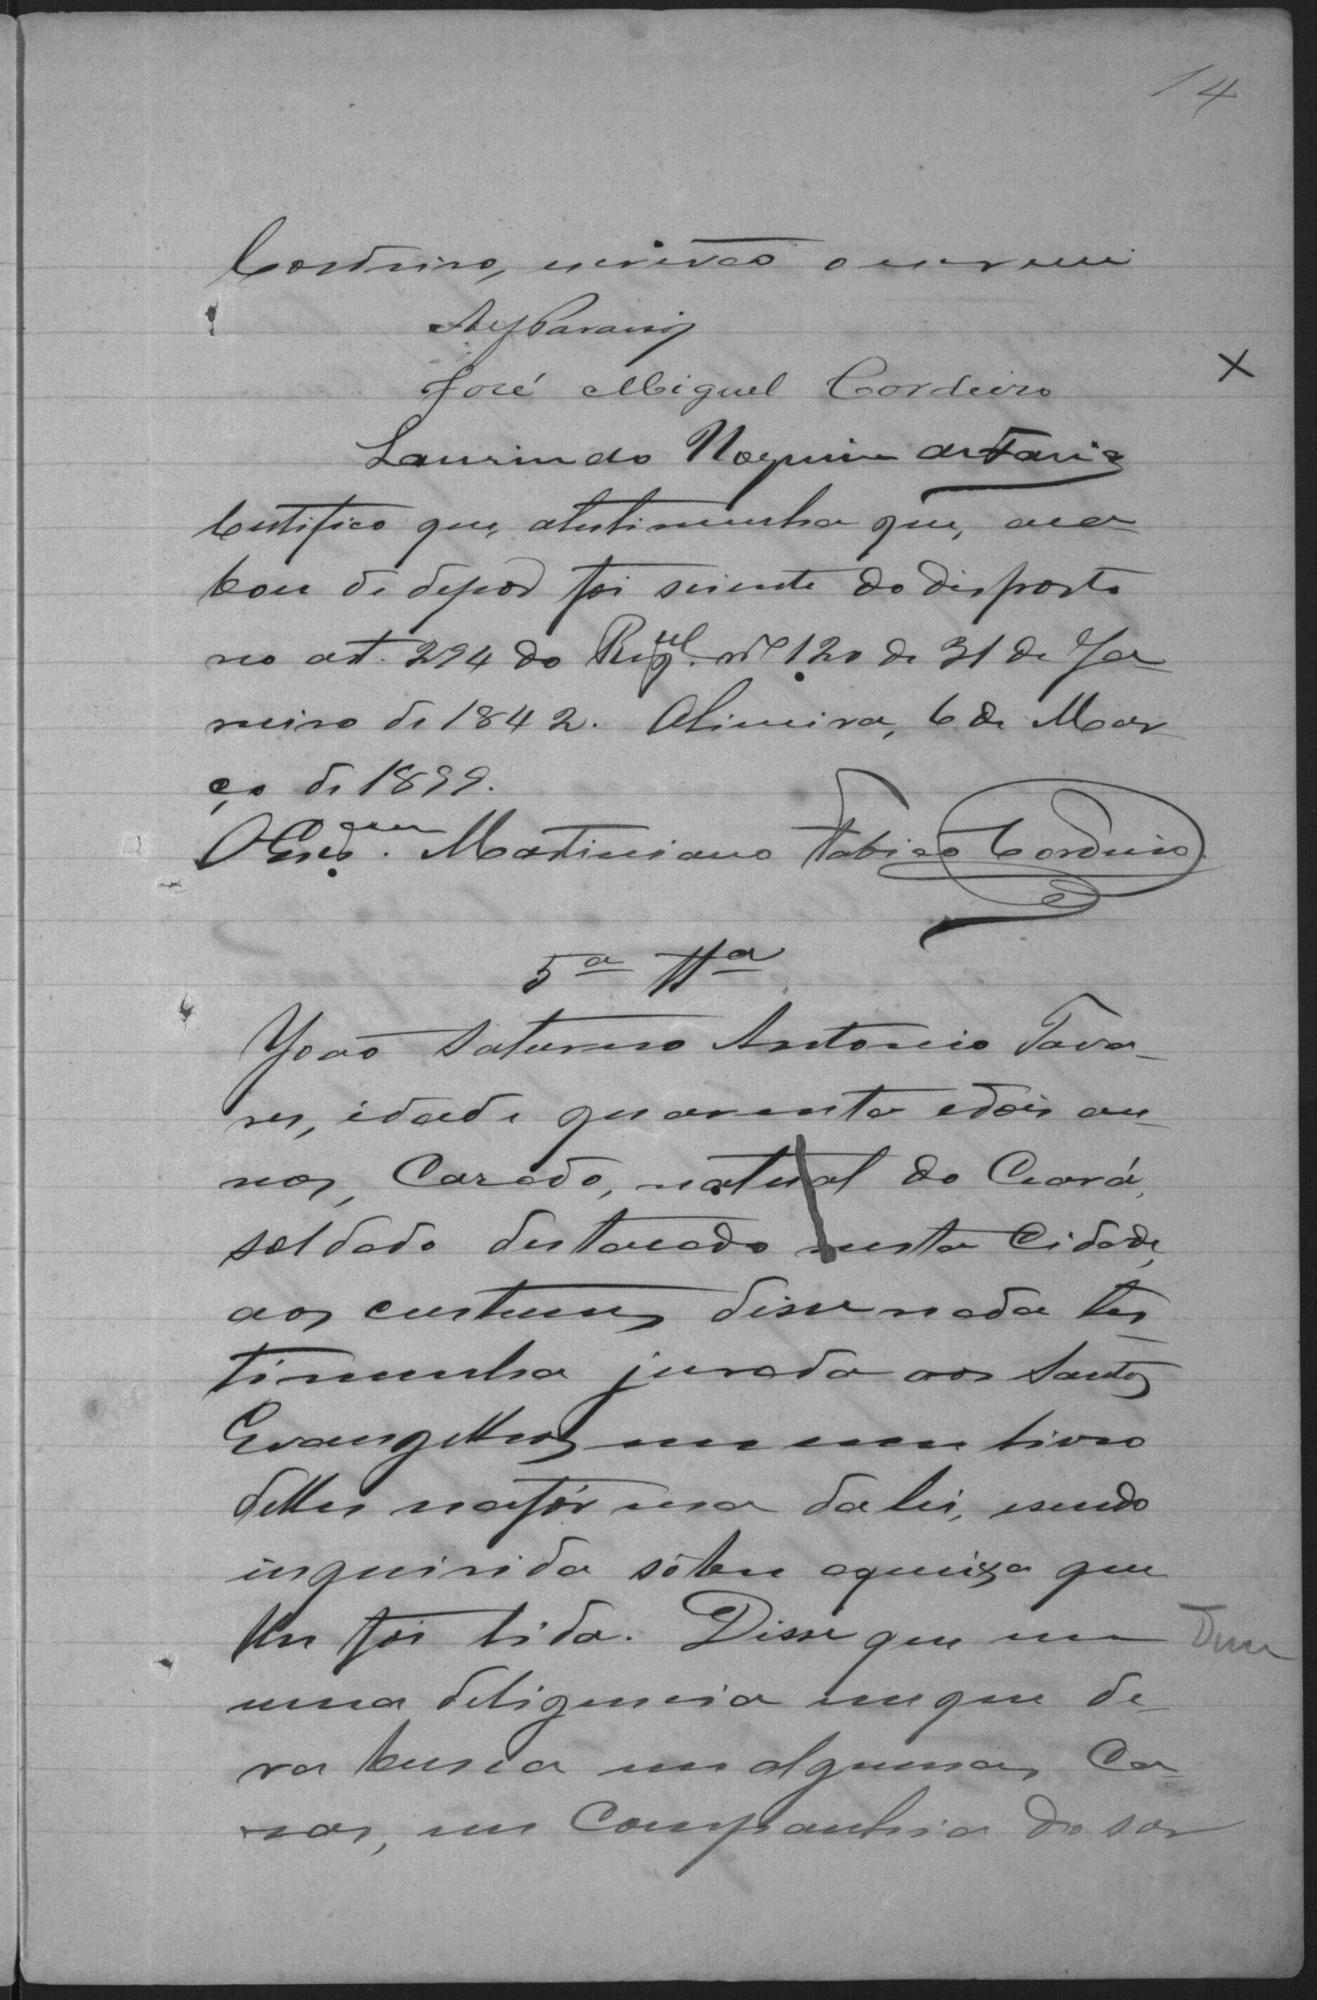 14
Cordeiro, escrivão o escrevi
José Miguel Cordeiro
Laurindo Nogueira de Faria
Certifico que, atestimunha que, aca-
bou de depor foi sciente do disposto
no art. 294 do Regul. nº 120 de 31 de Ja-
neiro de 1842. Limeira, 6 de Mar
ço de 1899.
O Escr.am Martiniano Fabião Cordeiro
5ª Ttª
João Saturno Antonio Tava-
res, idade quarenta edois an-
nos, Casado, natural do Ceará,
soldado destacado nesta Cidade,
aos custumes disse nada tes
timunha jurada aos Santos
Evangelhos em um livro
delles nafórma da lei, esendo
inquirida sobre aqueixa que
lhe foi lida. Disse que em
uma deligencia emque de-
ra busca em algumas Ca-
sas, em Companhia do sar